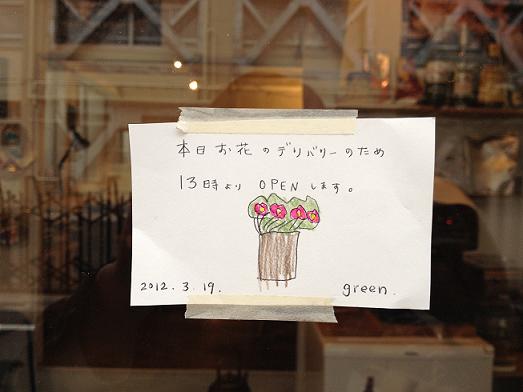 本日お花のデリバリーのため
13時より OPEN します。
2012.3.19.
green.